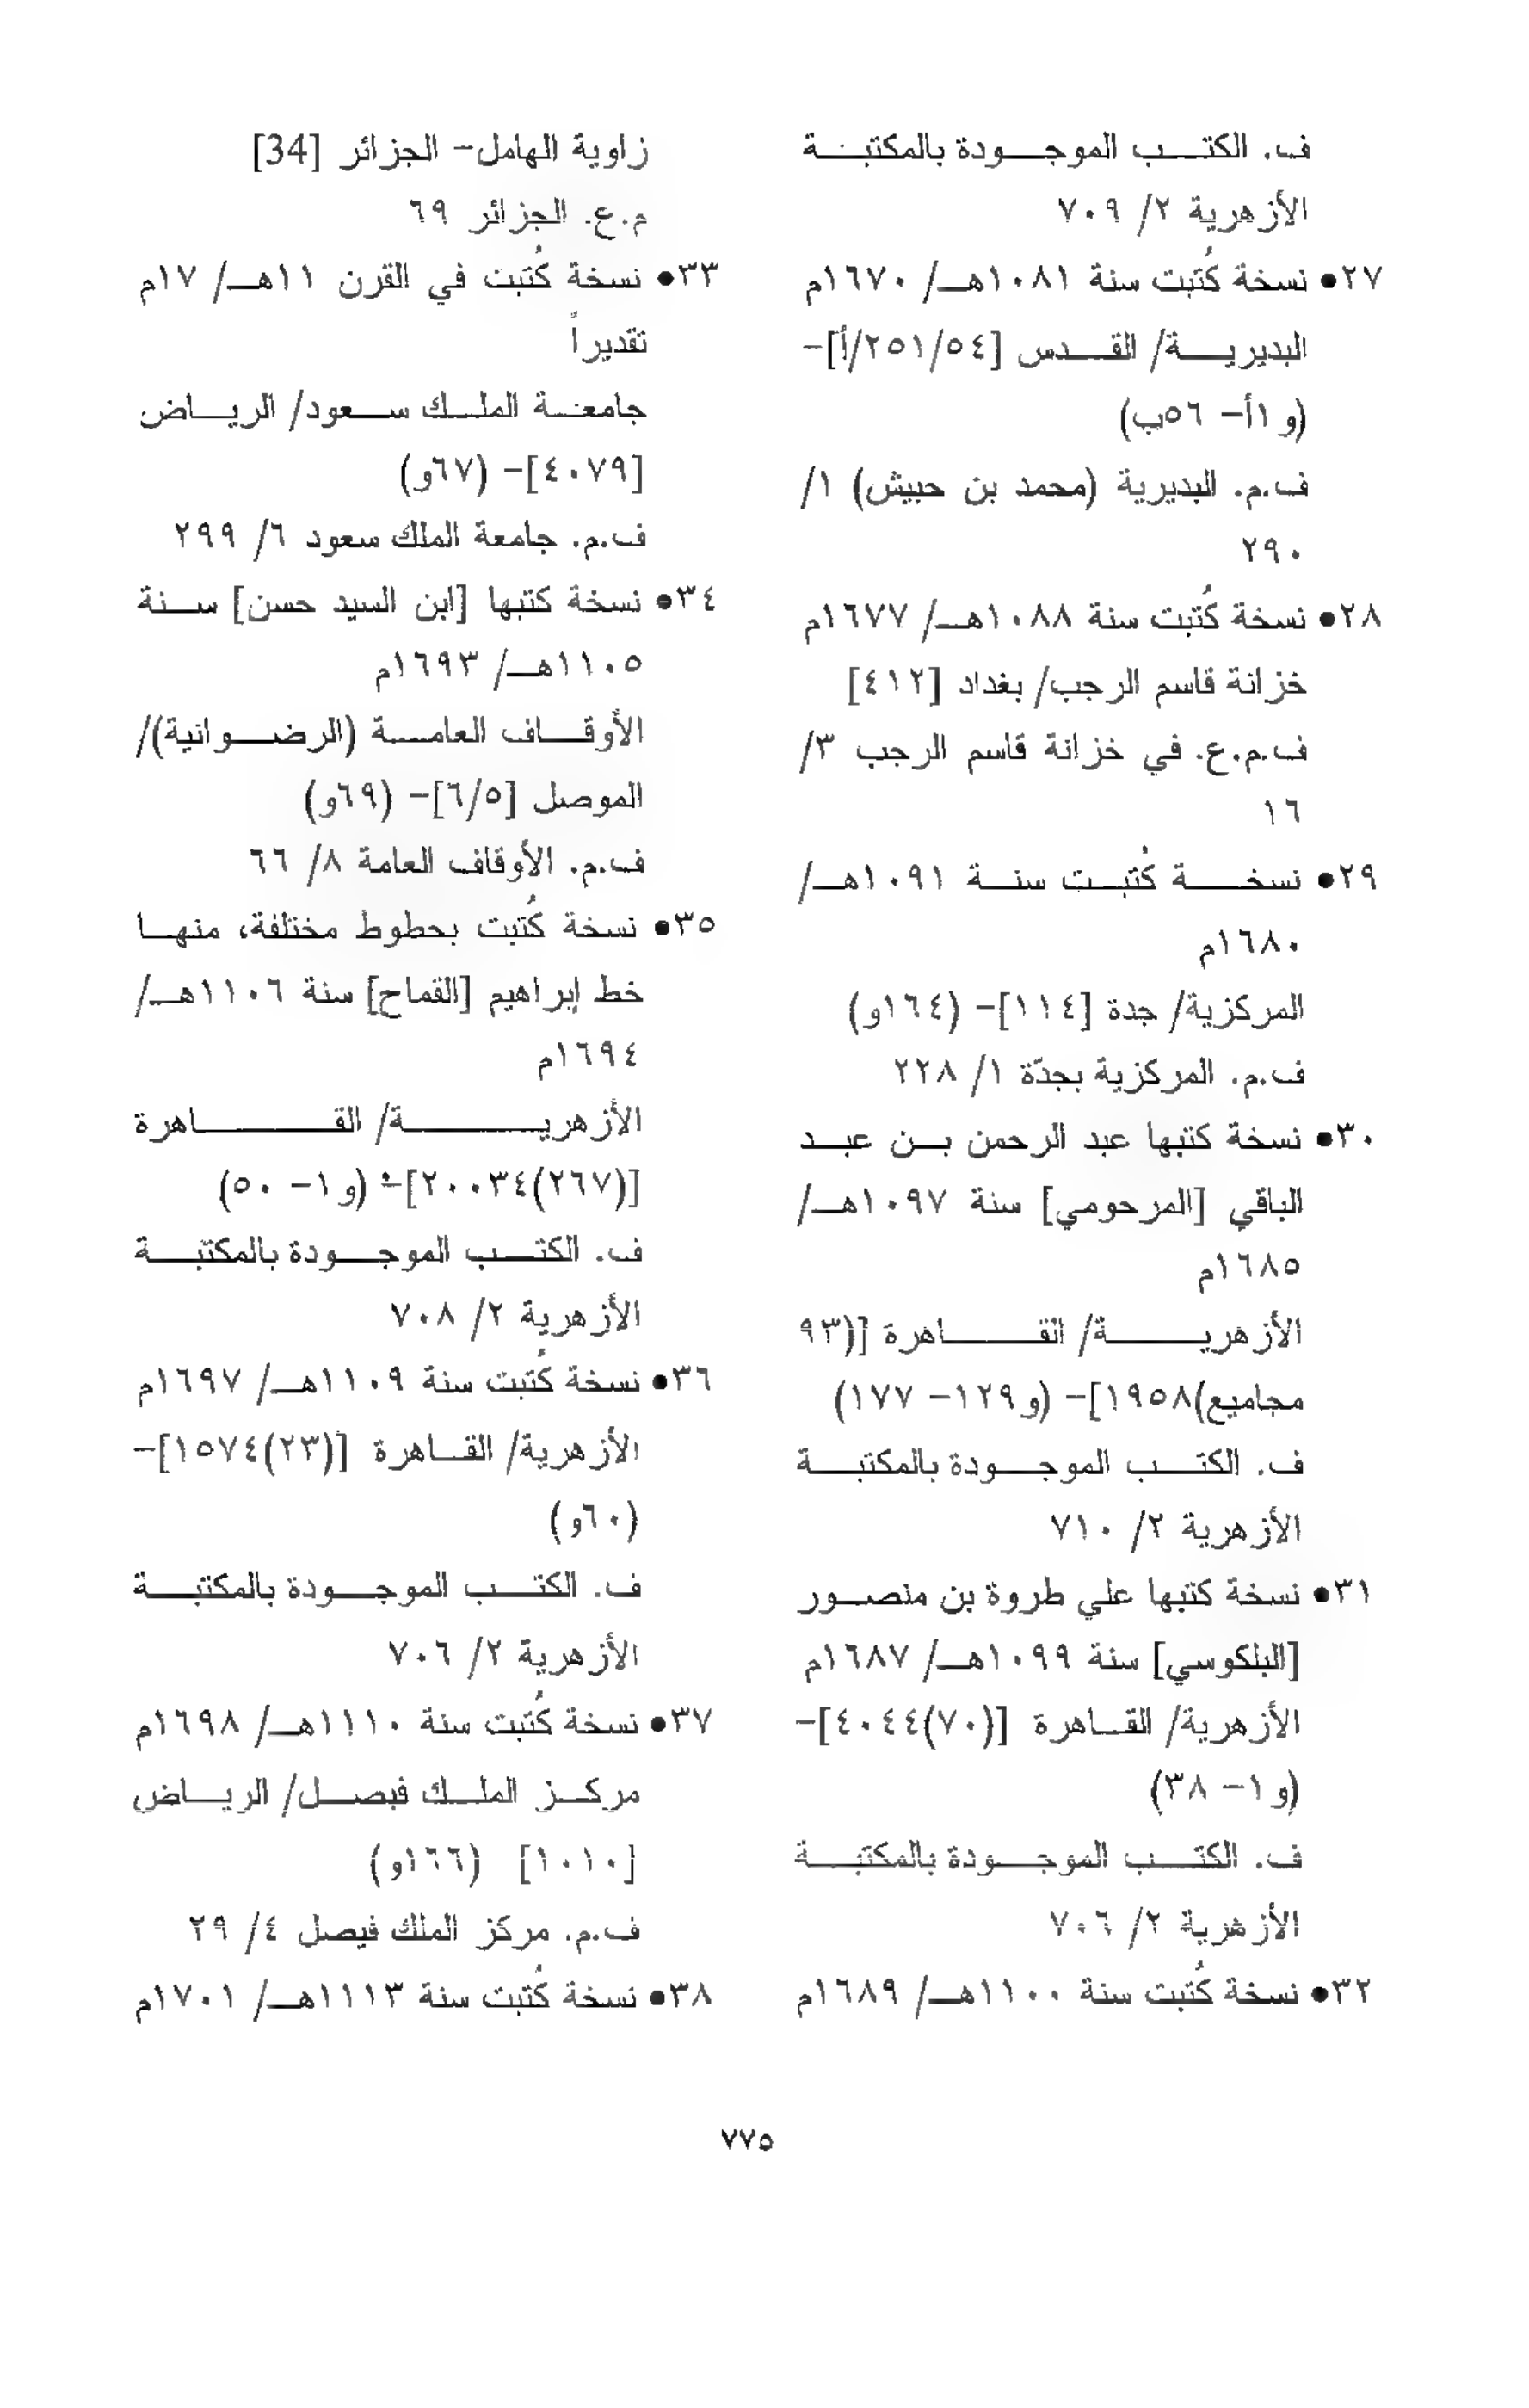 ف. الكتب الموجودة بالمكتبة
الأزهرية ٢/ ٧٠٩
٢٧● نسخة كُتبت سنة ١٠٨١هـ/ ١٦٧٠م
البديرية/ القدس [٢٥١/٥٤/أ]-
(و١أ- ٥٦ب)
ف.م. البديرية (محمد بن حبيش) ١/
٢٩٠
٢٨● نسخة كُتبت سنة ١٠٨٨هـ/ ١٦٧٧م
خزانة قاسم الرجب/ بغداد [٤١٢]
ف.م.ع. في خزانة قاسم الرجب ٣/
١٦
٢٩● نسخة كُتبت سنة ١٠٩١هـ/
١٦٨٠م
المركزية/ جدة [١١٤]- (١٦٤و)
ف.م. المركزية بجدّة ١/ ٢٢٨
٣٠● نسخة كتبها عبد الرحمن بن عبد
الباقي [المرحومي] سنة ١٠٩٧هـ/
١٦٨٥م
الأزهرية/ القاهرة [(٩٣
مجاميع)١٩٥٨]- (و١٢٩- ١٧٧)
ف. الكتب الموجودة بالمكتبة
الأزهرية ٢/ ٧١٠
٣١● نسخة كتبها علي طروة بن منصور
[البلكوسي] سنة ١٠٩٩هـ/ ١٦٨٧م
الأزهرية/ القاهرة [(٧٠)٤٠٤٤]-
(و١- ٣٨)
ف. الكتب الموجودة بالمكتبة
الأزهرية ٢/ ٧٠٦
٣٢● نسخة كُتبت سنة ١١٠٠هـ/ ١٦٨٩م
زاوية الهامل- الجزائر [34]
م.ع. الجزائر ٦٩
٣٣● نسخة كُتبت في القرن ١١هـ/ ١٧م
تقديراً
جامعة الملك سعود/ الرياض
[٤٠٧٩]- (٦٧و)
ف.م. جامعة الملك سعود ٦/ ٢٩٩
٣٤● نسخة كتبها [ابن السيد حسن] سنة
١١٠٥هـ/ ١٦٩٣م
الأوقاف العامة (الرضوانية)/
الموصل [٦/٥]- (٦٩و)
ف.م. الأوقاف العامة ٨/ ٦٦
٣٥● نسخة كُتبت بحطوط مختلفة، منها
خط إبراهيم [القماح] سنة ١١٠٦هـ/
١٦٩٤م
الأزهرية/ القاهرة
[(٢٦٧)٢٠٠٣٤]- (و١- ٥٠)
ف. الكتب الموجودة بالمكتبة
الأزهرية ٢/ ٧٠٨
٣٦● نسخة كُتبت سنة ١١٠٩هـ/ ١٦٩٧م
الأزهرية/ القاهرة [(٢٣)١٥٧٤]-
(٦٠و)
ف. الكتب الموجودة بالمكتبة
الأزهرية ٢/ ٧٠٦
٣٧● نسخة كُتبت سنة ١١١٠هـ/ ١٦٩٨م
مركز الملك فيصل/ الرياض
[١٠١٠] (١٦٦و)
ف.م. مركز الملك فيصل ٤/ ٢٩
٣٨● نسخة كُتبت سنة ١١١٣هـ/ ١٧٠١م
٧٧٥